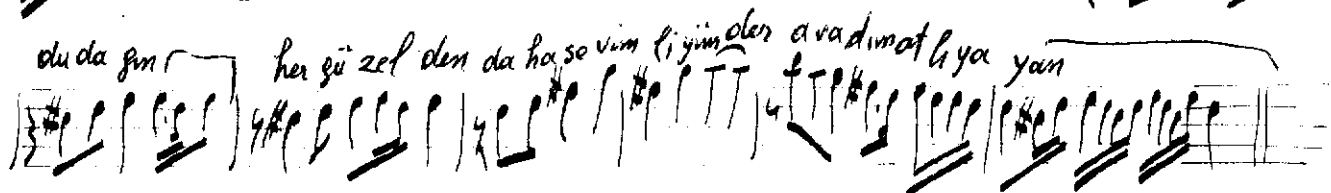 duda ğın her gü zel den da ha se vim li yüm der ara dım at lı ya yan